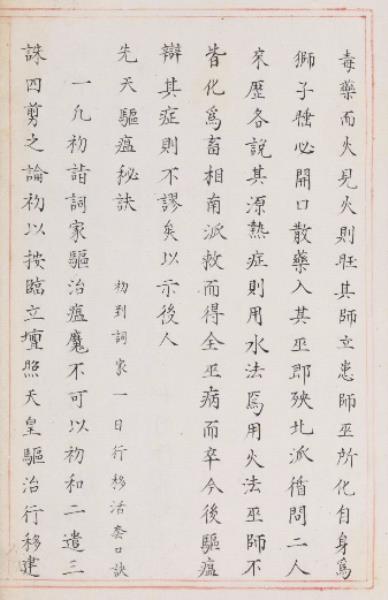 毒藥而火見火則旺其師立患師巫所化自身爲
獅子腫必開口散藥入其巫即殃北派循問二人
來歷各說其源熱症則用水法爲用火法巫師不
皆化爲畜相南派救而得全巫病而卒今後驅瘟
辯其症則不謬矣以示後人
先天驅瘟秘訣 初到詞家一日行移活套口訣
一凡初詣詞家驅治瘟魔不可以初和二遣三
誅四剪之論初以按臨立壇照天皇驅治行移建